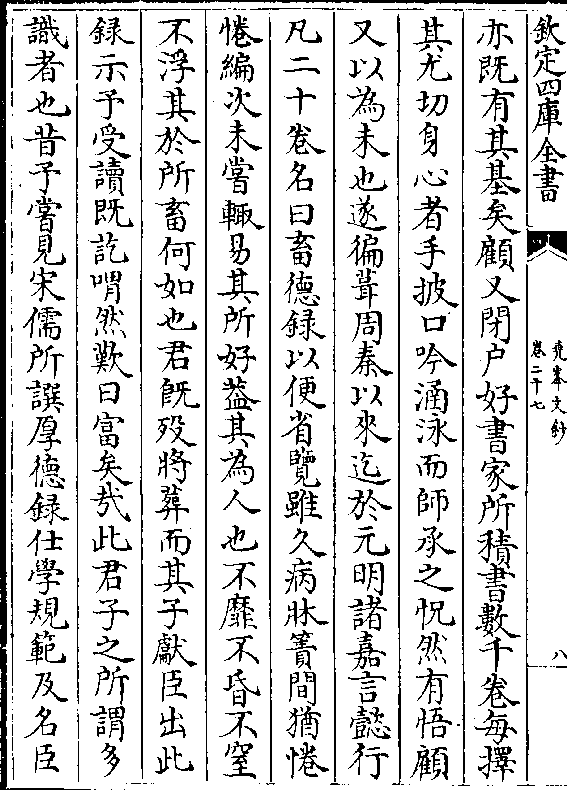 欽定四庫全書
堯峯文鈔
卷二十七
八
亦既有其基矣顧又閉户好書家所積書數千卷每擇
其尤切身心者手披口吟涵泳而師承之怳然有悟顧
又以為未也遂徧葺周秦以來迄於元明諸嘉言懿行
凡二十卷名曰畜德録以便省覽雖久病牀簀間猶惓
惓編次未嘗輙易其所好葢其為人也不靡不昏不窒
不浮其於所畜何如也君旣歿將葬而其子獻臣出此
録示予受讀既訖喟然歎曰富矣哉此君子之所謂多
識者也昔予嘗見宋儒所譔厚德録仕學規範及名臣